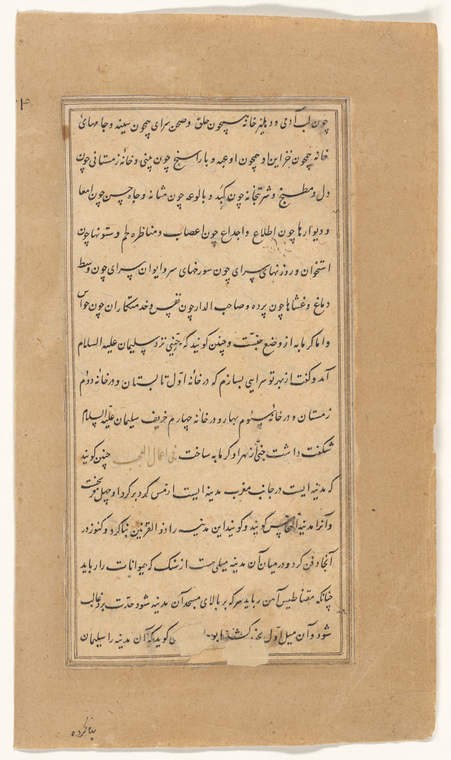 چون لب آدمی و دهلیز خانه همچون حلق و صحن سرای همچون سینه و جامهای
خانه همچون خزاین او همچون اوعیه و باز سنج چون بینی و خانه زمستانی چون
دل و مطبخ و شربتخانه چون کبد و بالوعه چون مثانه و چاه چون امعا
و دیوارها چون اضلاع و اجداع چون اعصاب و مناظره لحم و ستونها چون
استخوان و روزنهای سرای چون سورخهای سر و ایوان سرای چون وسط
دماغ و غشاها چون پرده و صاحب الدار چون نفس و خدمتکاران چون حواس
و اما کرمابه از وضع جنست و چنین کویند که جنی نزد سلیمان علیه السلام
آمد و کفت از بهر تو سرایی بسازم که در خانه اول تابستان و در خانه دوم
زمستان و در خانه سیوم بهار و در خانه چهارم خریف سلیمان علیه السلام
شکفت داشت جنی از بهر او کرمابه ساخت چنین کویند
که مدینه ایست در جانب مغرب مدینه ایست از مس کرد بر کرد او چهل فرسخت
و آنرا مدینه النحاس کویند و کویند این مدینه را ذو القرنین بنا کرد و کنوز در
آنجا دفن کرد و در میان آن مدینه میلی است از سنک که حیوانات را رباید
چنانکه مقناطیس آهن رباید هر که بر بالای مسجد آن مدینه شود حدت بر و غالب
شود و آن میل اول کویند که آن مدینه را سلیمان
بنا کرده